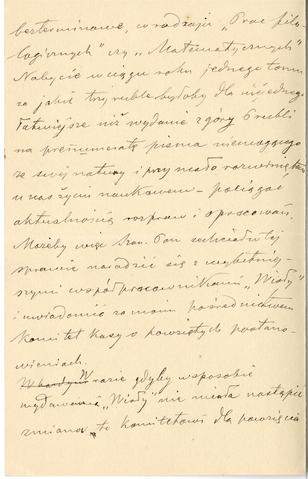 bezterminowe, w rodzaju „Prac filo-
logicznych" czy „Matematycznych"
Nabycie w ciągu roku jednego tomu
za jakie trzy ruble byłoby dla niejednego
łatwiejsze niż wydanie z góry 6 rubli
na prenumeratę pisma niemogącego
ze swej natury i przy mało rozwiniętem
u nas życiu naukowem – pociągać
aktualnością rozpraw i opracowań.
Możeby więc Szan. Pan zechciał w tej
sprawie naradzić się z wybitniej-
szymi współpracownikami „Wisły"
i uwiadomić za moim pośrednictwem
Komitet Kasy o powziętych postano-
wieniach.
W razie gdyby w sposobie
wydawania „Wisły" nie miała nastąpić
zmiana, to Komitetowi dla powzięcia